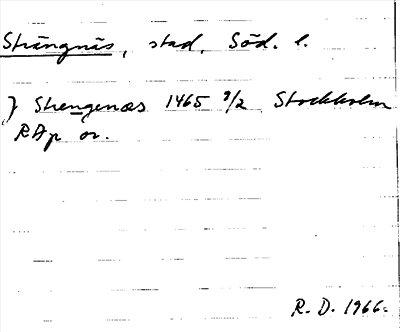 Strängnäs, stad, Söd. l.
} Strengenæs 1465 9/2 Stockholm
RAp or.
R. D. 1966.